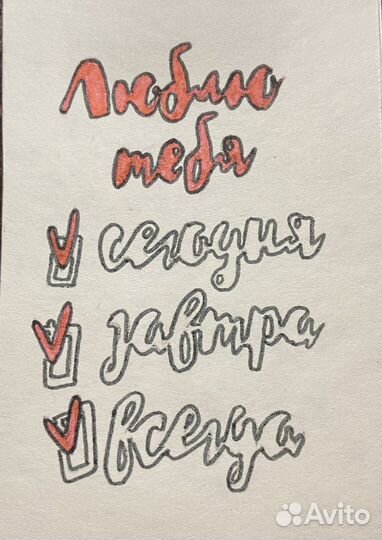 Люблю
тебя
сегодня
завтра
всегда
Avito